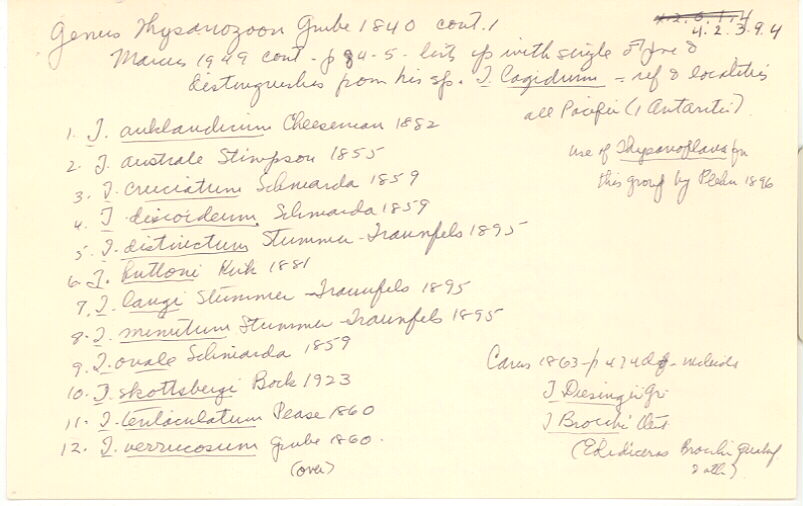 Genus Thysanozoon Grube 1840 cont.
4.2.3.9.4
Marcus 1949 cont - p 84-5 - lists sp with single ♂ pore &
distinguishes from his sp. T. Cagidium = ref & localities
all Pacific (1 Antarctic)
1. T. auklandicum Cheeseman 1882
2. T. australe Stimpson 1855
use of Thysanoflava for
this group by Plehn 1896
3. T. cruciatum Schmarda 1859
4. T discoideum Schmarda 1859
5. T. distinctum Stummer-Traunfels 1895
6. T. huttoni Kirk 1881
7. T. langi Stummer-Traunfels 1895
8. T. minutum Stummer-Traunfels 1895
9. T. ovale Schmarda 1859
10. T. skottsbergi Bock 1923
11. T. tentaculatum Pease 1860
12. T. verrucosum Grube 1860.
(over)
Carus 1863 - p
T Diesingii Gr.
T Brocchi
(Brocchi
& others)